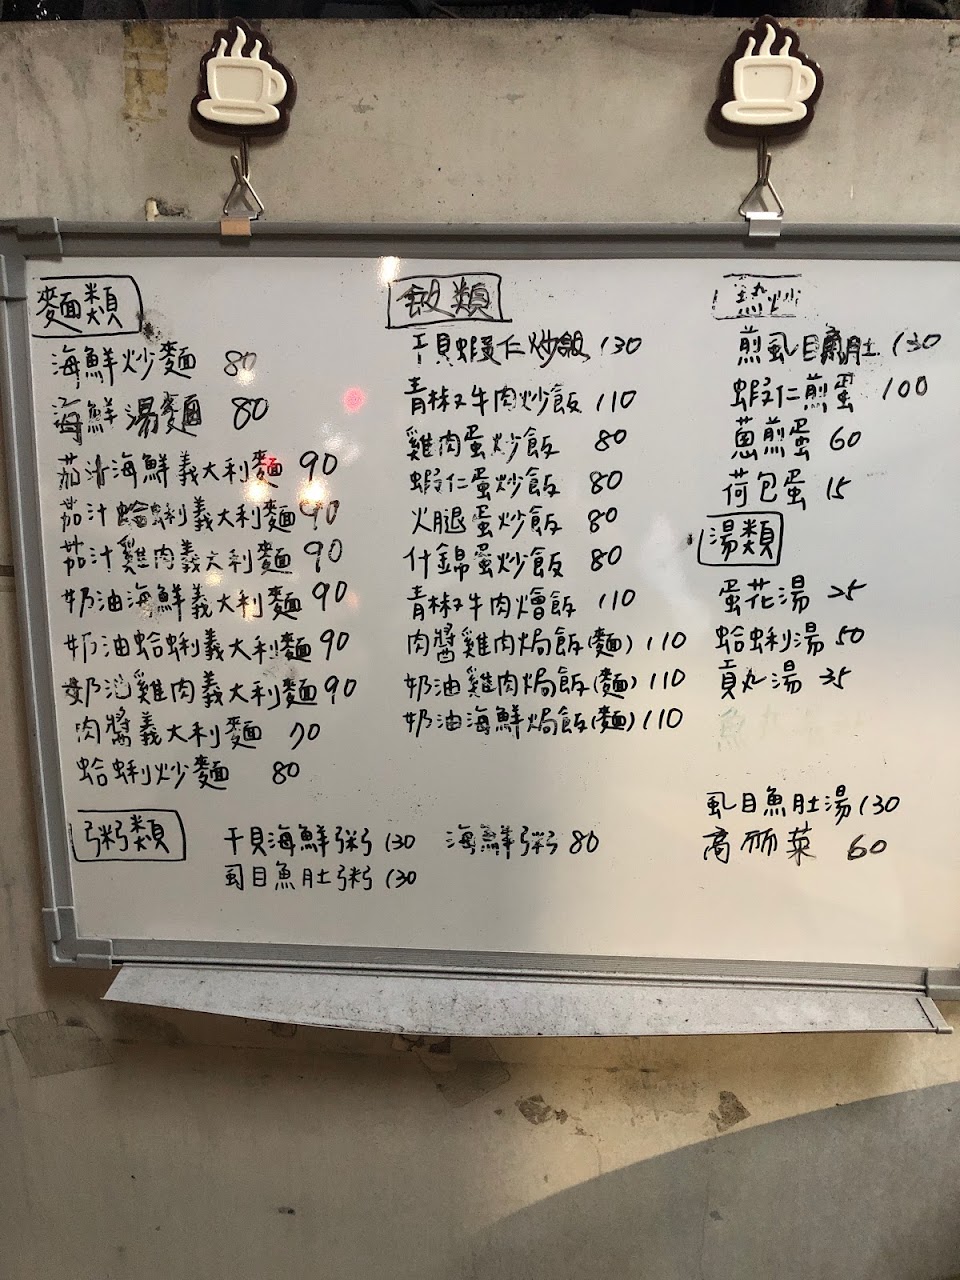 麵類
海鮮炒麵 80
海鮮湯麵 80
茄汁海鮮義大利麵 90
茄汁蛤蜊義大利麵 90
茄汁雞肉義大利麵 90
奶油海鮮義大利麵 90
奶油蛤蜊義大利麵 90
奶油雞肉義大利麵 90
肉醬義大利麵 70
蛤蜊炒麵 80
飯類
干貝蝦仁炒飯 130
青椒牛肉炒飯 110
雞肉蛋炒飯 80
蝦仁蛋炒飯 80
火腿蛋炒飯 80
什錦蛋炒飯 80
青椒牛肉燴飯 110
肉醬雞肉焗飯(麵) 110
奶油雞肉焗飯(麵) 110
奶油海鮮焗飯(麵) 110
熱炒
煎虱目魚肚 130
蝦仁煎蛋 100
蔥煎蛋 60
荷包蛋 15
湯類
蛋花湯 25
蛤蜊湯 50
貢丸湯 35
虱目魚肚湯 130
高麗菜 60
粥類
干貝海鮮粥 130 海鮮粥 80
虱目魚肚粥 130